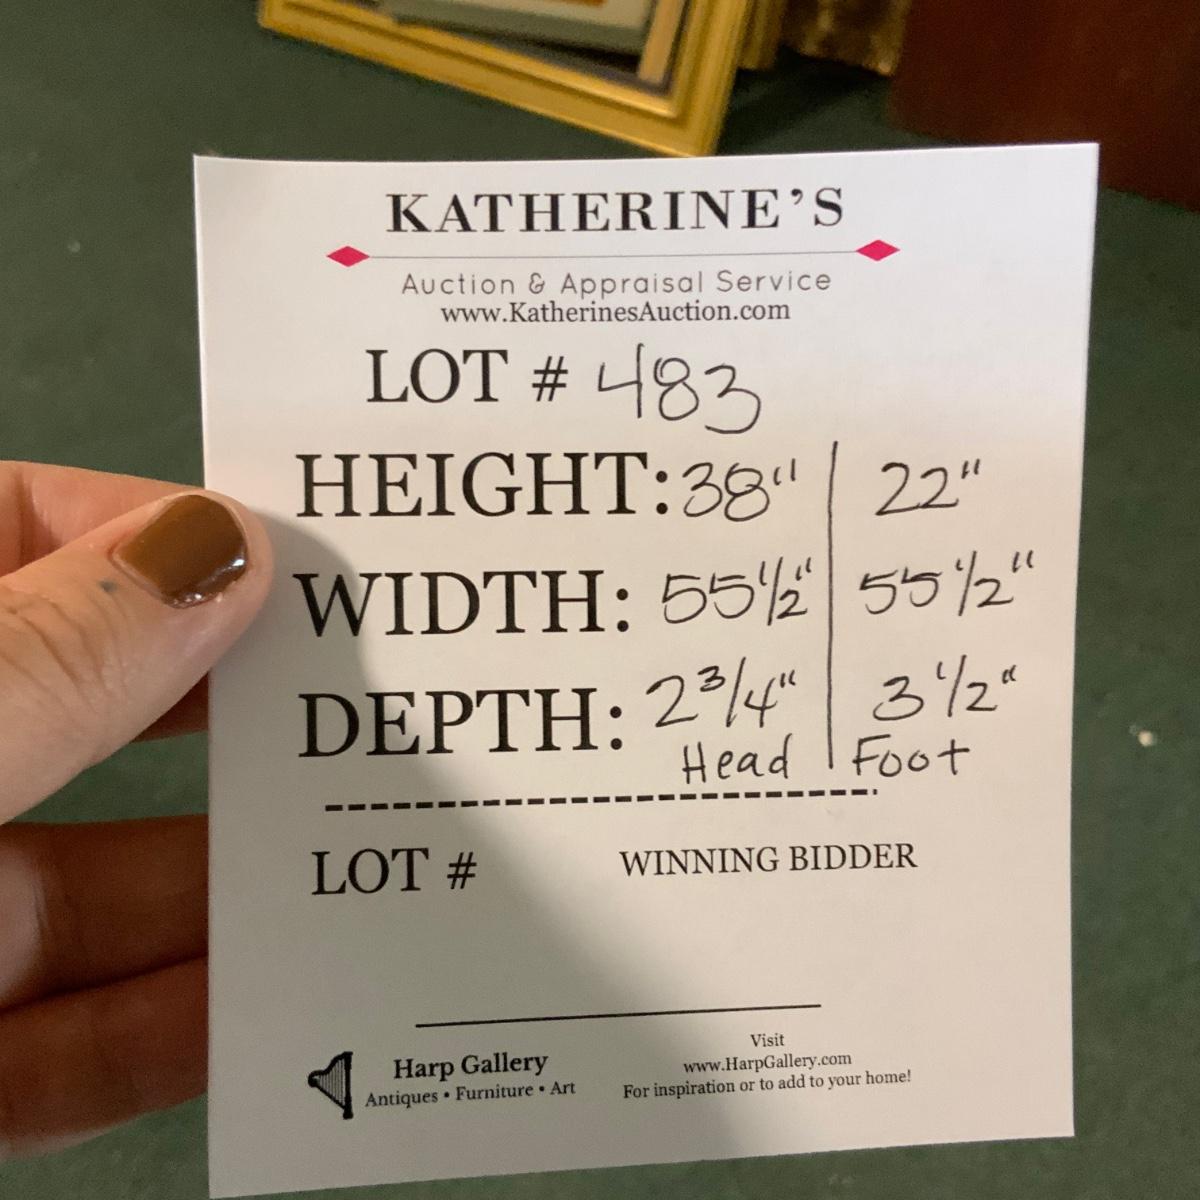 KATHERINE'S
Auction & Appraisal Service
www.KatherinesAuction.com
LOT # 483
HEIGHT: 38" | 22"
WIDTH: 55 1/2" | 55 1/2"
DEPTH: 2 3/4" | 3 1/2"
Head | Foot
LOT # WINNING BIDDER
Harp Gallery
Antiques • Furniture • Art
Visit
www.HarpGallery.com
For inspiration or to add to your home!